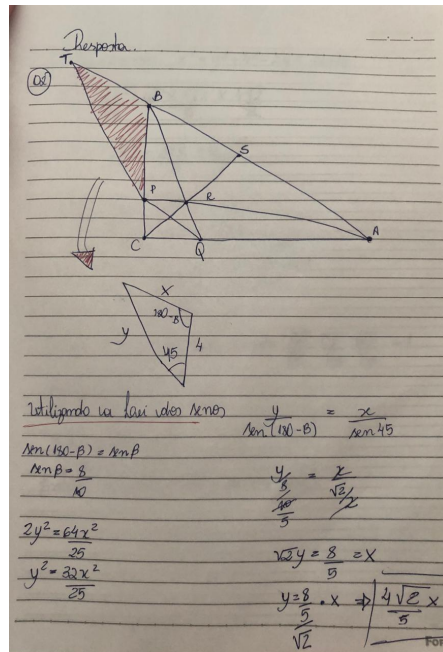 Resposta.
02
T
B
S
P
R
C
Q
A
x
180-β
y
45
4
Utilizando a Lei dos senos
y/sen(180-β) = x/sen45
sen(180-β) = senβ
senβ = 8/10
y/(8/10) = x/(√2/2)
5
2y² = 64x²/25
√2y = 8/5 = x
y² = 32x²/25
y = 8/5/√2 • x ⇒ 4√2/5 x
For